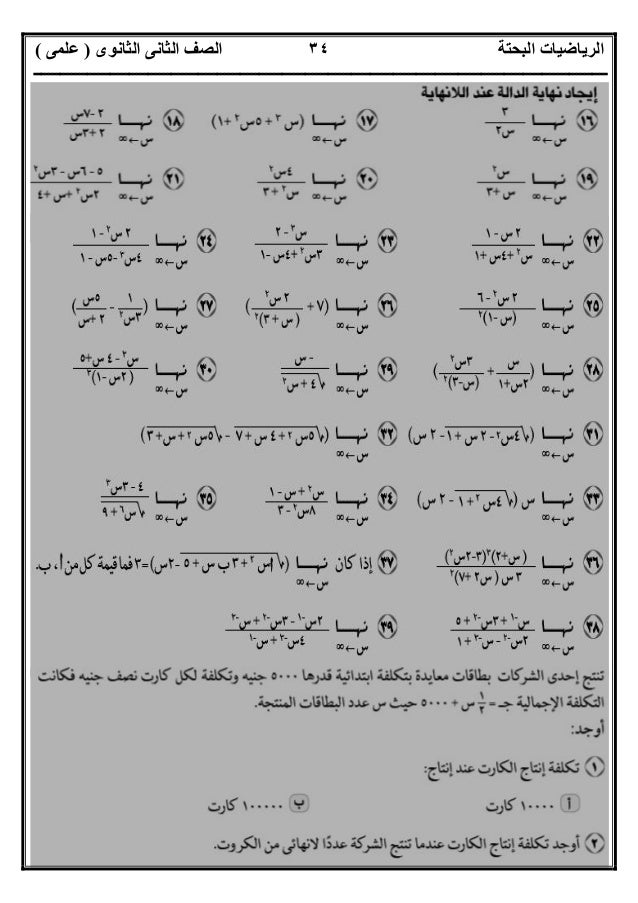 الرياضيات البحتة ٣٤ الصف الثانى الثانوى ( علمى )
إيجاد نهاية الدالة عند اللانهاية
١٦ نهــا س←∞ ٣/س٢ ١٧ نهــا س←∞ (س٣ + ٥س٢ + ١) ١٨ نهــا س←∞ (٢ - ٧س)/(٢ + ٣س)
١٩ نهــا س←∞ س٢/(س + ٣) ٢٠ نهــا س←∞ ٤س٢/(س٢ + ٣) ٢١ نهــا س←∞ (٥ - ٦س - ٣س٢)/(٢س٢ + س + ٤)
٢٢ نهــا س←∞ (٢س - ١)/(س٢ + ٤س + ١) ٢٣ نهــا س←∞ (س٢ - ٢)/(٣س٢ + ٤س - ١) ٢٤ نهــا س←∞ (٢س٢ - ١)/(٤س٣ - ٥س - ١)
٢٥ نهــا س←∞ (٢س٢ - ٦)/(س - ١)٢ ٢٦ نهــا س←∞ (٧ + ٢س٢/(س + ٣)٢) ٢٧ نهــا س←∞ (١/٣س٢ - ٥س/(٢ + س))
٢٨ نهــا س←∞ (س/(٢س + ١) + ٣س٢/(س - ٣)٢) ٢٩ نهــا س←∞ -س/√(٤ + س٢) ٣٠ نهــا س←∞ (س٢ - ٤س + ٥)/(٢س - ١)٣
٣١ نهــا س←∞ (√(٤س٢ - ٢س + ١) - ٢س) ٣٢ نهــا س←∞ (√(٥س٢ + ٤س + ٧) - √(٥س٢ + س + ٣))
٣٣ نهــا س←∞ س (√(٤س٢ + ١) - ٢س) ٣٤ نهــا س←∞ (س٢ + س - ١)/(٨س٢ - ٣) ٣٥ نهــا س←∞ (٤ - ٣س٣)/√(س٦ + ٩)
٣٦ نهــا س←∞ (س + ٢)٣(٣ - ٢س٢)/٣س(س٢ + ٧)٢ ٣٧ إذا كان نهــا س←∞ (√(أس٢ + ٣ب س + ٥) - ٢س) = ٣ فما قيمة كل من أ، ب.
٣٨ نهــا س←∞ (س-١ + ٣س-٢ + ٥)/(٢س-٢ - س-٢ + ١) ٣٩ نهــا س←∞ (٢س-١ - ٣س-٢ + س-٢)/(٤س-٢ + س-١)
تنتج إحدى الشركات بطاقات معايدة بتكلفة ابتدائية قدرها ٥٠٠٠ جنيه وتكلفة لكل كارت نصف جنيه فكانت
التكلفة الإجمالية جـ = ١/٢ س + ٥٠٠٠ حيث س عدد البطاقات المنتجة.
أوجد:
١ تكلفة إنتاج الكارت عند إنتاج:
أ ١٠٠٠٠ كارت ب ١٠٠٠٠٠ كارت
٢ أوجد تكلفة إنتاج الكارت عندما تنتج الشركة عددًا لانهائى من الكروت.